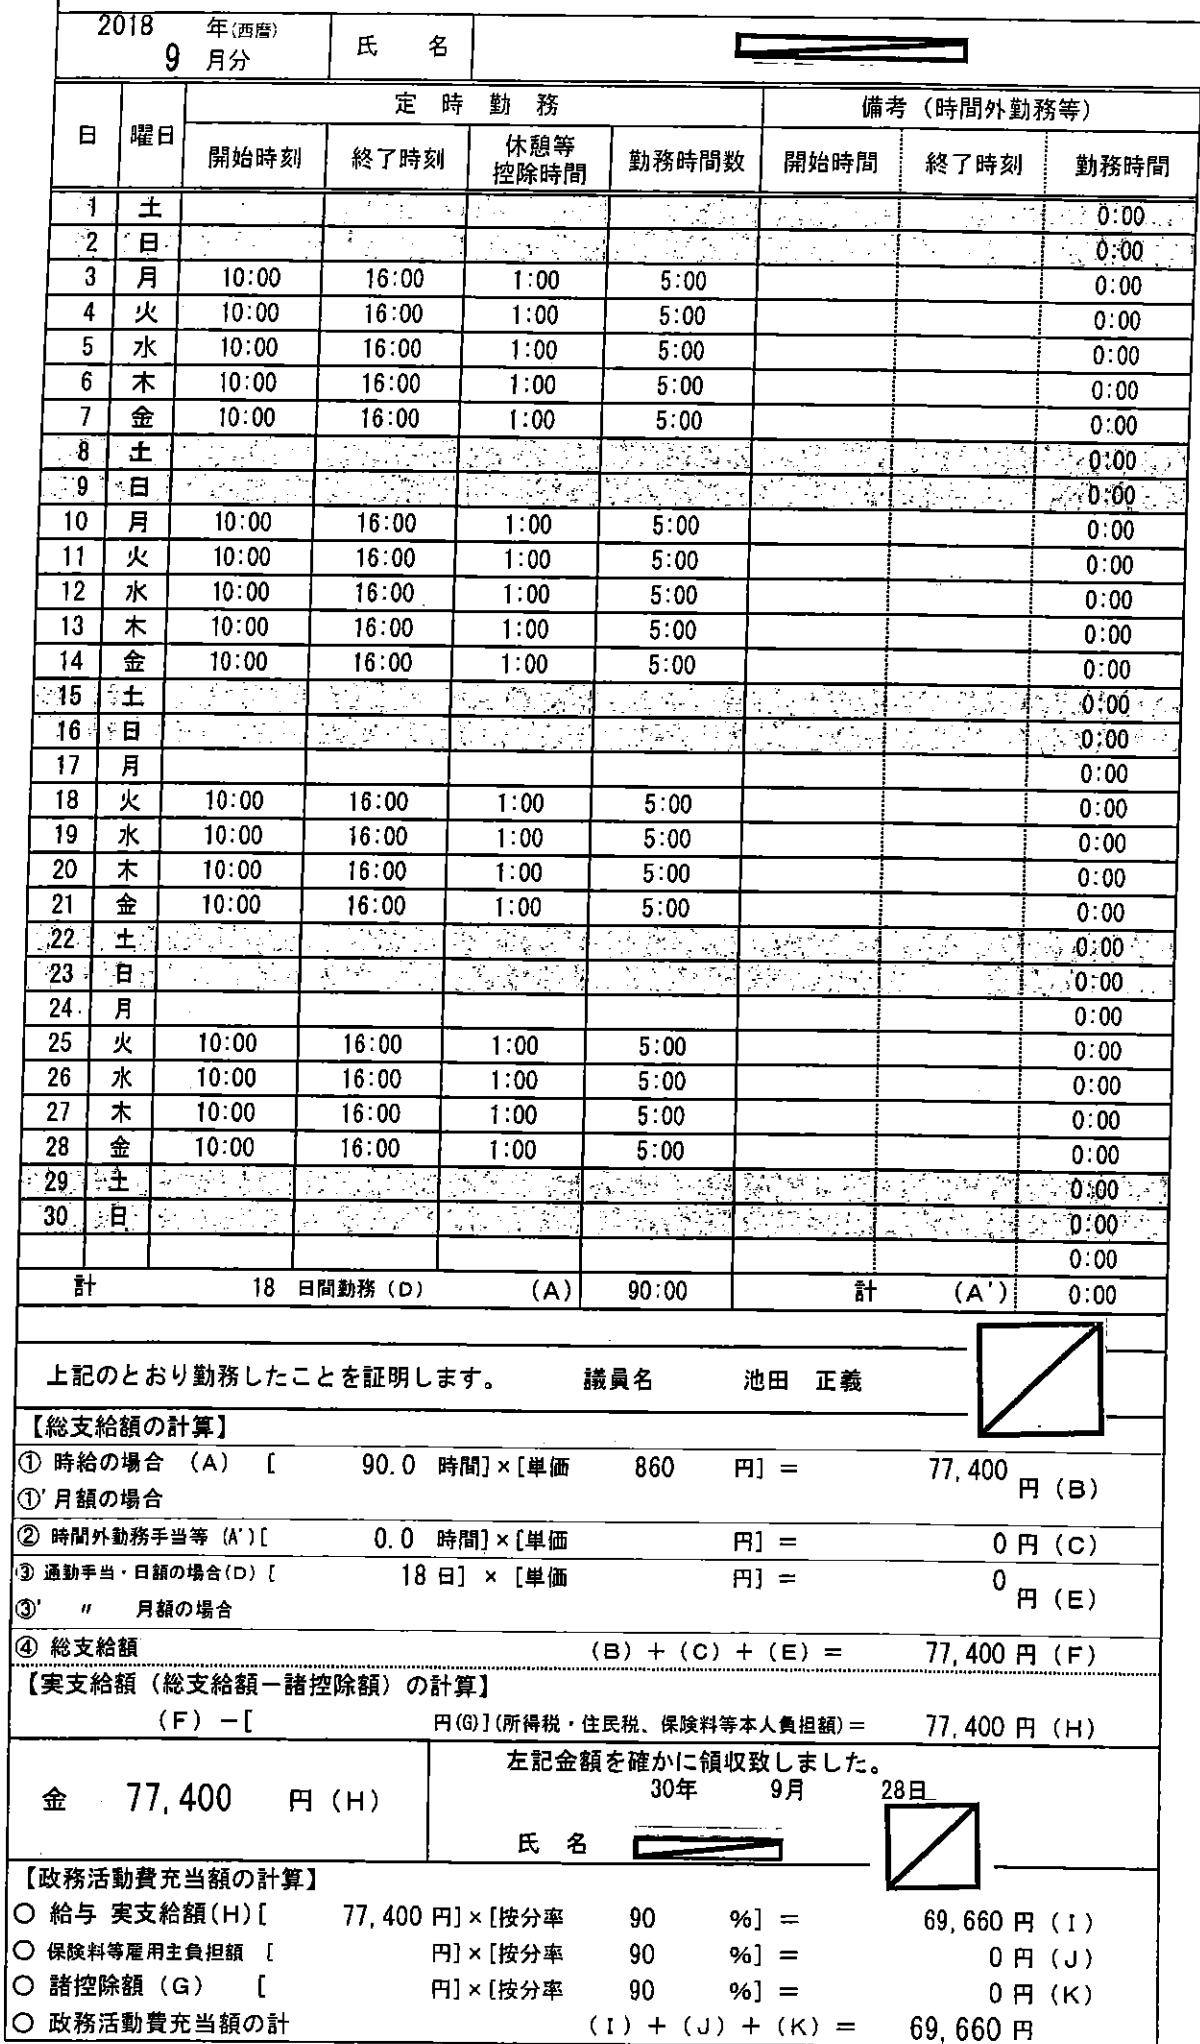 2018 年(西暦)
9 月分 氏 名
日 曜日 定 時 勤 務 備考(時間外勤務等)
開始時刻 終了時刻 休憩等控除時間 勤務時間数 開始時間 終了時刻 勤務時間
1 土 0:00
2 日 0:00
3 月 10:00 16:00 1:00 5:00 0:00
4 火 10:00 16:00 1:00 5:00 0:00
5 水 10:00 16:00 1:00 5:00 0:00
6 木 10:00 16:00 1:00 5:00 0:00
7 金 10:00 16:00 1:00 5:00 0:00
8 土 0:00
9 日 0:00
10 月 10:00 16:00 1:00 5:00 0:00
11 火 10:00 16:00 1:00 5:00 0:00
12 水 10:00 16:00 1:00 5:00 0:00
13 木 10:00 16:00 1:00 5:00 0:00
14 金 10:00 16:00 1:00 5:00 0:00
15 土 0:00
16 日 0:00
17 月 0:00
18 火 10:00 16:00 1:00 5:00 0:00
19 水 10:00 16:00 1:00 5:00 0:00
20 木 10:00 16:00 1:00 5:00 0:00
21 金 10:00 16:00 1:00 5:00 0:00
22 土 0:00
23 日 0:00
24 月 0:00
25 火 10:00 16:00 1:00 5:00 0:00
26 水 10:00 16:00 1:00 5:00 0:00
27 木 10:00 16:00 1:00 5:00 0:00
28 金 10:00 16:00 1:00 5:00 0:00
29 土 0:00
30 日 0:00
0:00
計 18 日間勤務(D) (A) 90:00 計 (A') 0:00
上記のとおり勤務したことを証明します。 議員名 池田 正義
【総支給額の計算】
① 時給の場合 (A) [ 90.0 時間]×[単価 860 円] = 77,400 円(B)
①' 月額の場合
② 時間外勤務手当等 (A')[ 0.0 時間]×[単価 円] = 0 円(C)
③ 通勤手当・日額の場合(D) [ 18 日] × [単価 円] = 0 円(E)
③' 〃 月額の場合
④ 総支給額 (B) + (C) + (E) = 77,400 円(F)
【実支給額(総支給額-諸控除額)の計算】
(F) -[ 円(G)](所得税・住民税、保険料等本人負担額)= 77,400 円(H)
金 77,400 円(H)
左記金額を確かに領収致しました。
30年 9月 28日
氏 名
【政務活動費充当額の計算】
○ 給与 実支給額(H)[ 77,400 円]×[按分率 90 %] = 69,660 円(I)
○ 保険料等雇用主負担額 [ 円]×[按分率 90 %] = 0 円(J)
○ 諸控除額(G) [ 円]×[按分率 90 %] = 0 円(K)
○ 政務活動費充当額の計 (I) + (J) + (K) = 69,660 円